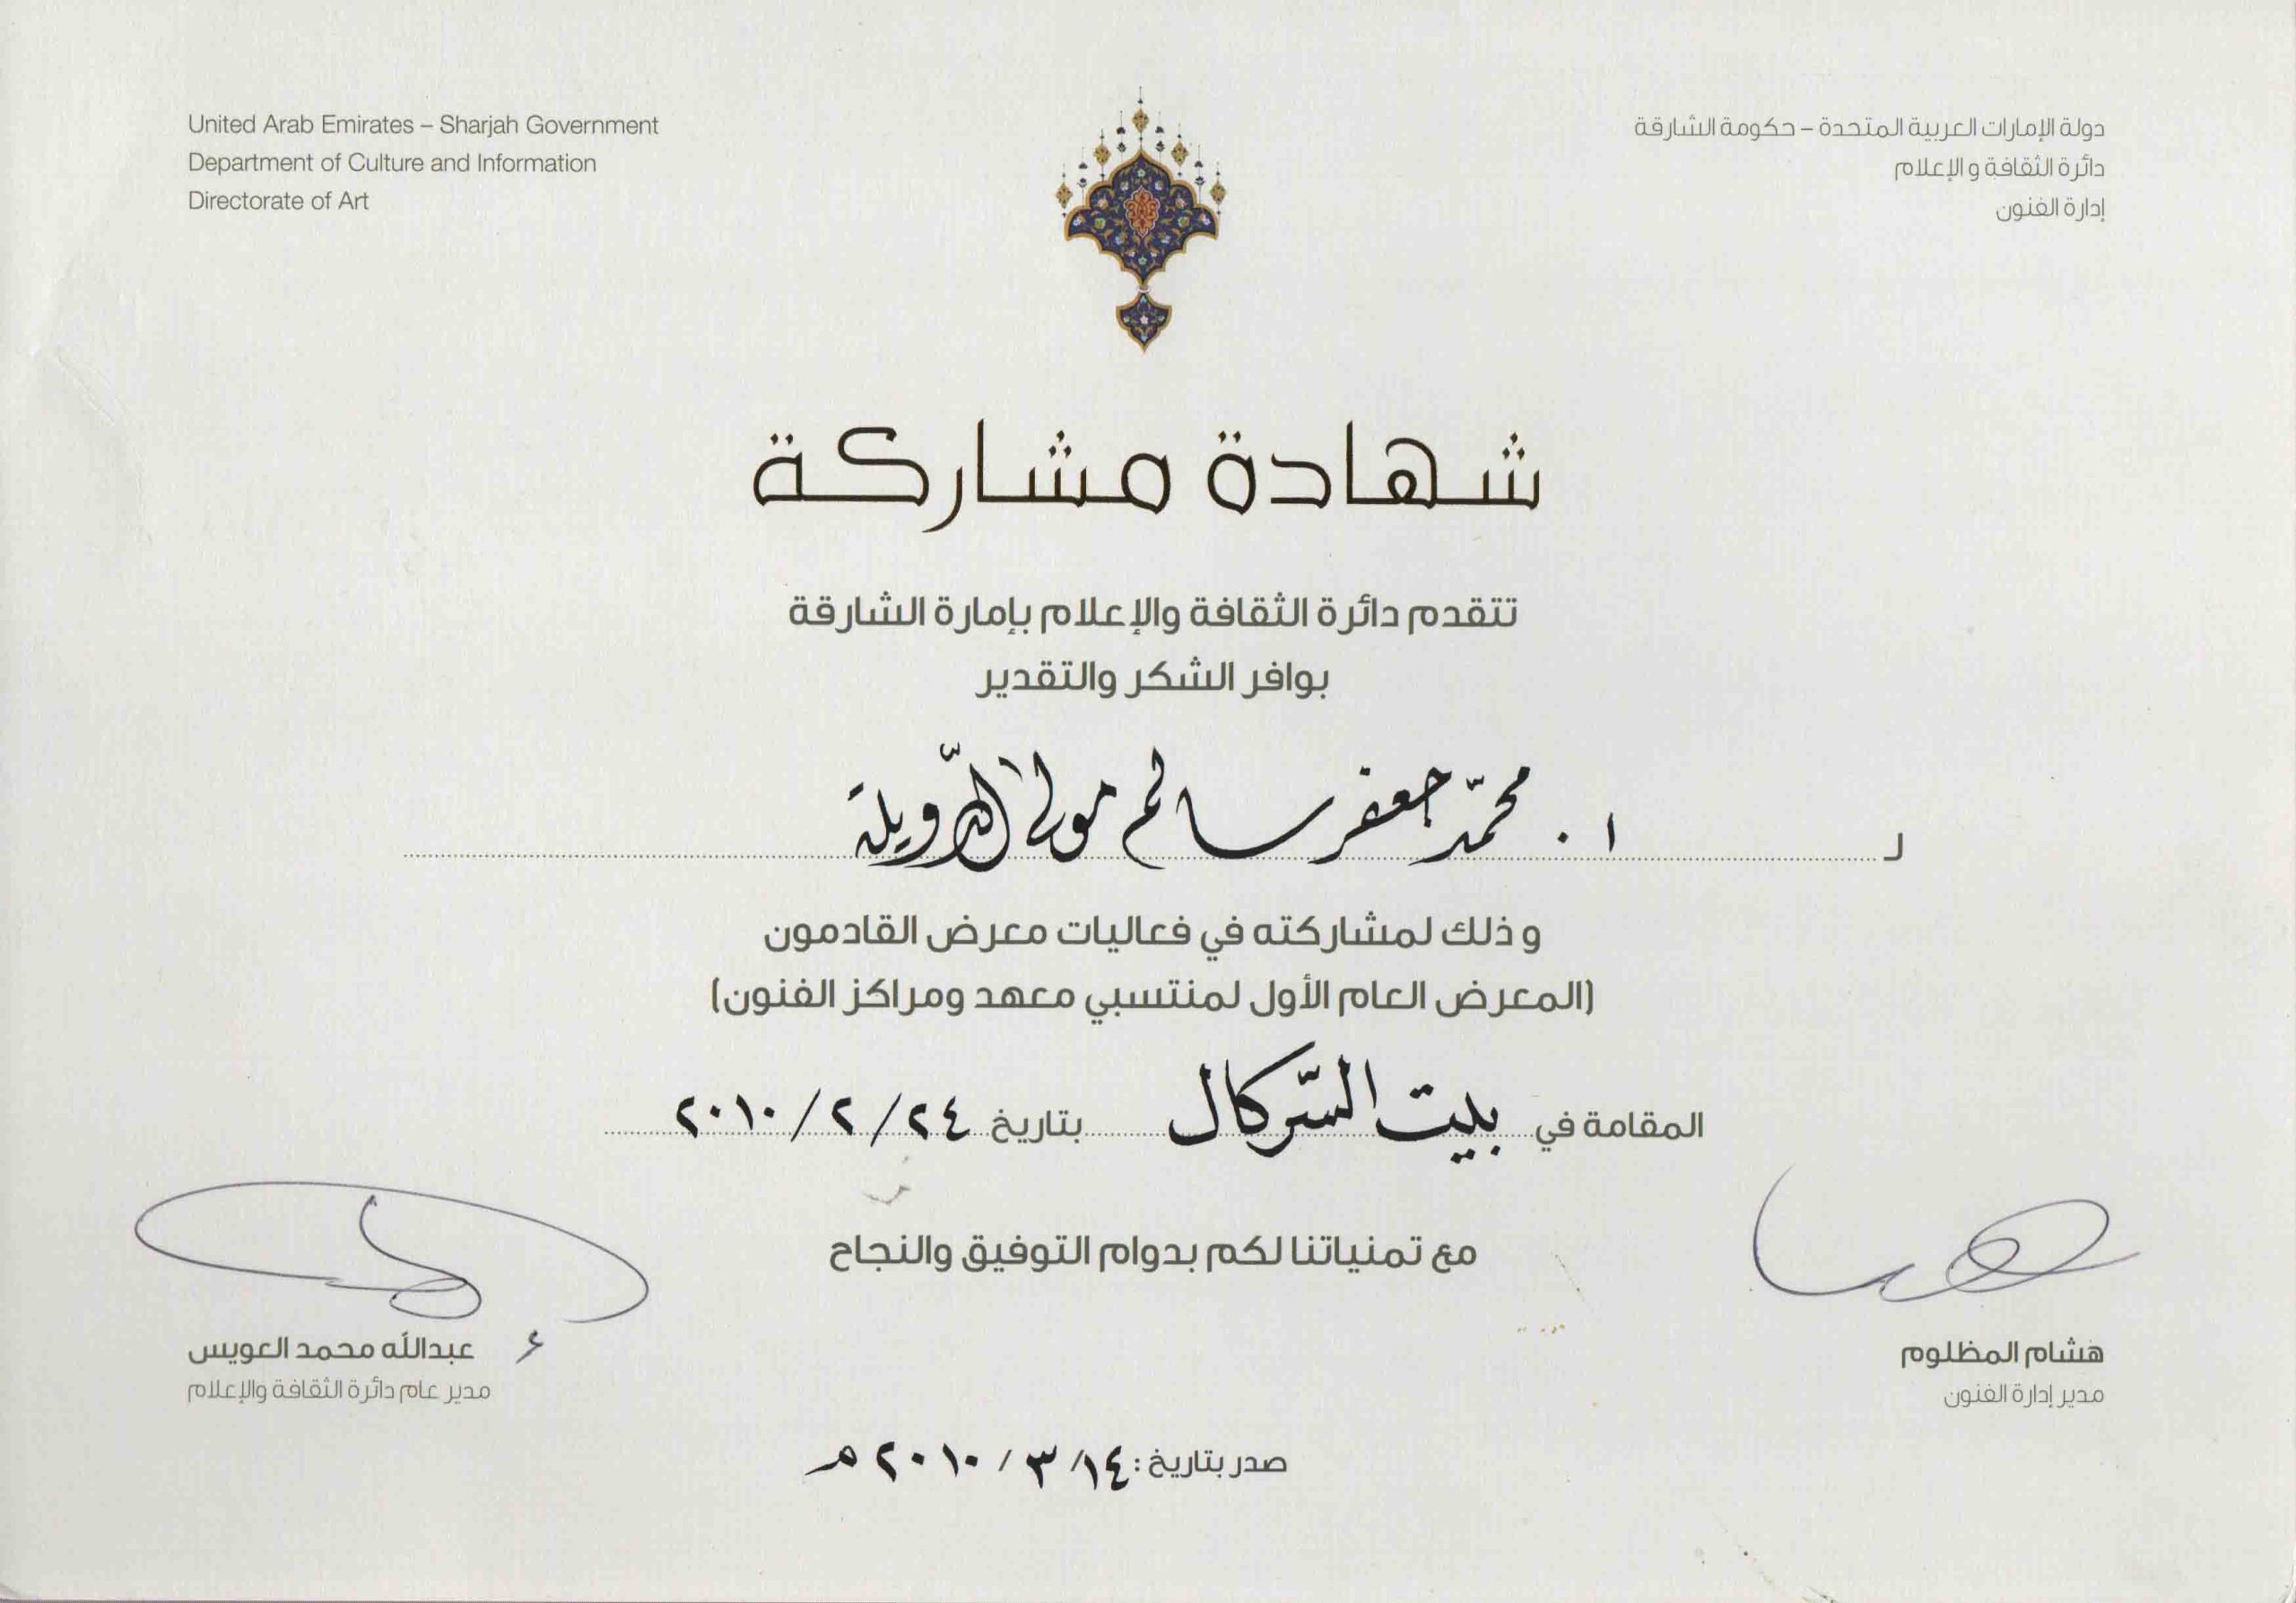 دولة الإمارات العربية المتحدة – حكومة الشارقة
دائرة الثقافة و الإعلام
إدارة الفنون
United Arab Emirates – Sharjah Government
Department of Culture and Information
Directorate of Art
شهادة مشاركة
تتقدم دائرة الثقافة والإعلام بإمارة الشارقة
بوافر الشكر والتقدير
لـ ا . محمّد جعفر سالم مولى الدّويلة
و ذلك لمشاركته في فعاليات معرض القادمون
(المعرض العام الأول لمنتسبي معهد ومراكز الفنون)
المقامة في بيت السّركال بتاريخ ٢٤/٢/٢٠١٠
مع تمنياتنا لكم بدوام التوفيق والنجاح
هشام المظلوم
مدير إدارة الفنون
عبدالله محمد العويس
مدير عام دائرة الثقافة والإعلام
صدر بتاريخ: ١٤/ ٣ / ٢٠١٠ م